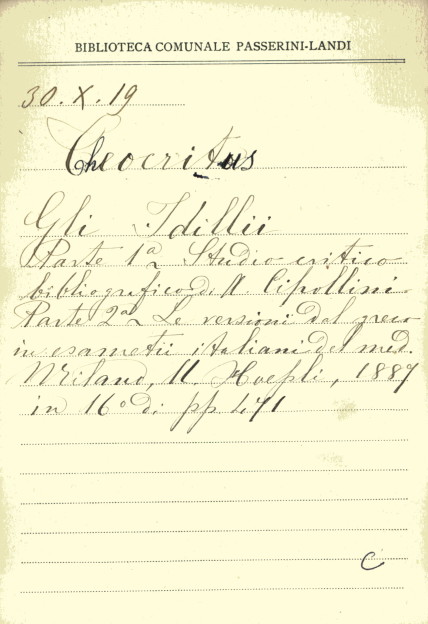 BIBLIOTECA COMUNALE PASSERINI-LANDI
30.X.19
Theocritus
Gli Idillii
Parte 1ª Studio critico
bibliografico di A. Cipollini
Parte 2ª Le versioni dal greco
in esametri italiani del med.
Milano, U. Hoepli, 1887
in 16º di pp 471
C